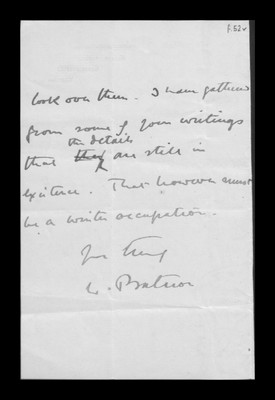 f.52v
look over them. I have gathered
from some of your writings
the details
that they are still in
existence. That however must
be a winter occupation.
Yrs truly
W. Bateson